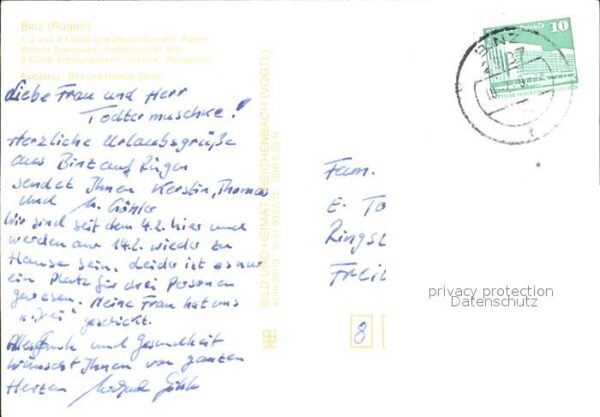 Binz (Rügen)
1, 2 und 4 FDGB-Urlauberrestaurant "Rügen"
Klassik-Speisesaal, Außenansicht, Bar
3 FDGB-Erholungsheim "Arkona", Rezeption
Farbfotos: Bild und Heimat
Liebe Frau und Herr
Todtermuschke!
Herzliche Urlaubsgrüße
aus Binz auf Rügen
sendet Ihnen Kerstin, Thomas
und
Wir sind seit dem 4.2. hier und
werden am 14.2. wieder zu
Hause sein. Leider ist es nur
ein Platz für drei Personen
gewesen. Meine Frau hat uns
"drei" geschickt.
Alles Gute und Gesundheit
wünscht Ihnen von ganzen
Herzen
BILD UND HEIMAT REICHENBACH (VOGTL)
10
BINZ
Fam.
E. To
Ringst
Frei
8
privacy protection
Datenschutz